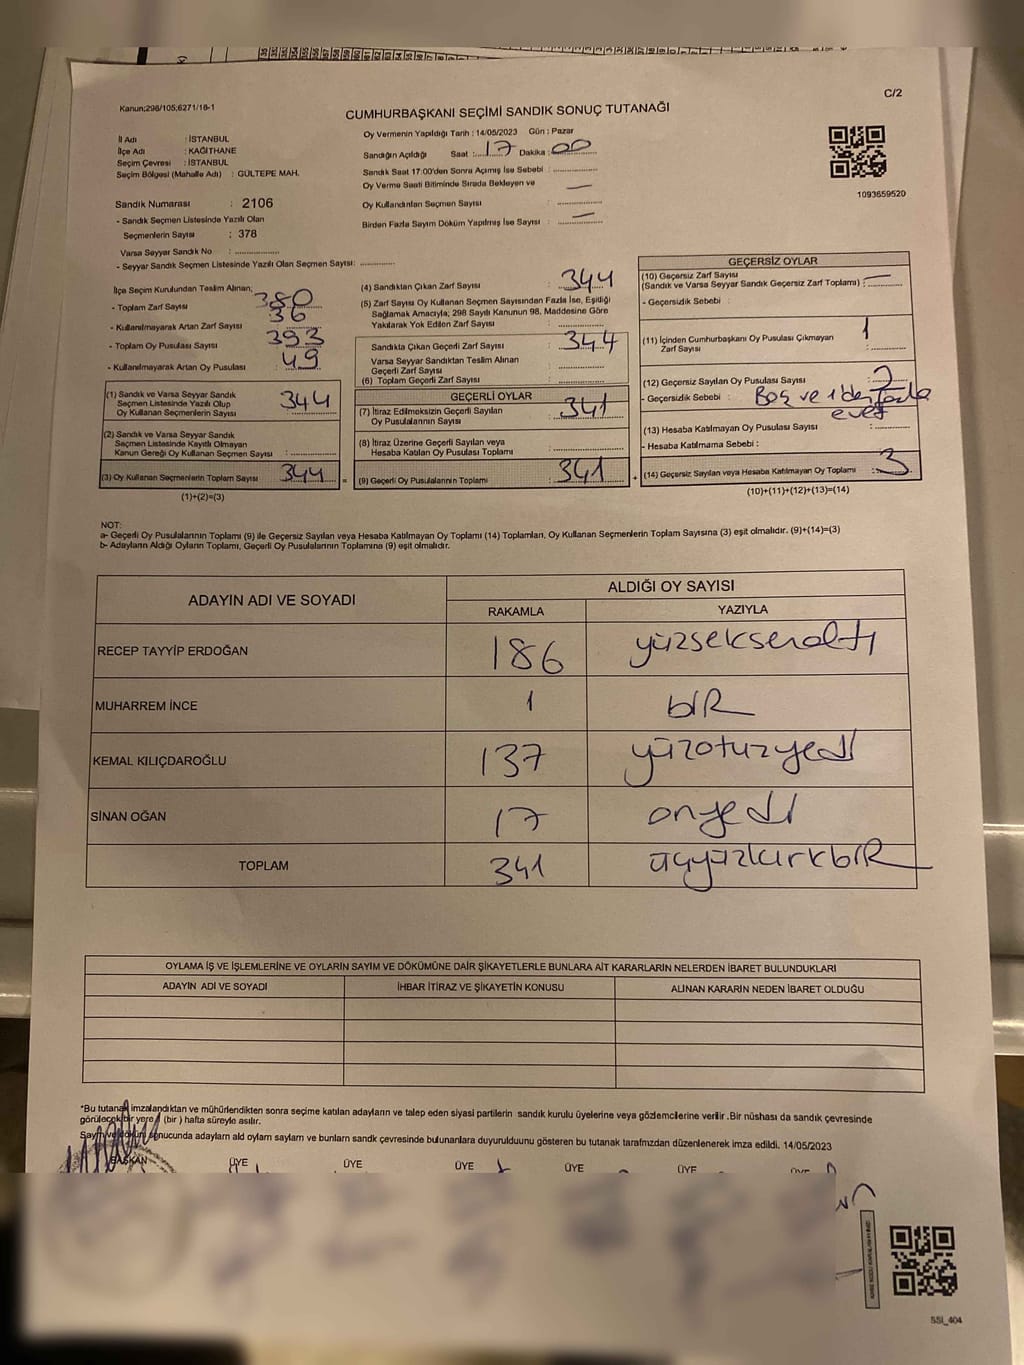 C/2
Kanun;298/105,6271/16-1
CUMHURBAŞKANI SEÇİMİ SANDIK SONUÇ TUTANAĞI
İl Adı : İSTANBUL
İlçe Adı : KAĞITHANE
Seçim Çevresi : İSTANBUL
Seçim Bölgesi (Mahalle Adı) : GÜLTEPE MAH.
Sandık Numarası : 2106
- Sandık Seçmen Listesinde Yazılı Olan
Seçmenlerin Sayısı : 378
Varsa Seyyar Sandık No :
- Seyyar Sandık Seçmen Listesinde Yazılı Olan Seçmen Sayısı:
Oy Vermenin Yapıldığı Tarih : 14/05/2023 Gün : Pazar
Sandığın Açıldığı Saat : 17 Dakika : 00
Sandık Saat 17:00'den Sonra Açımış İse Sebebi :
Oy Verme Saati Bitiminde Sırada Bekleyen ve —
Oy Kullandırılan Seçmen Sayısı :
Birden Fazla Sayım Döküm Yapılmış İse Sayısı : —
1093659520
İlçe Seçim Kurulundan Teslim Alınan;
- Toplam Zarf Sayısı 380
- Kullanılmayarak Artan Zarf Sayısı 36
- Toplam Oy Pusulası Sayısı 393
- Kullanılmayarak Artan Oy Pusulası 49
(1) Sandık ve Varsa Seyyar Sandık
Seçmen Listesinde Yazılı Olup
Oy Kullanan Seçmenlerin Sayısı 344
(2) Sandık ve Varsa Seyyar Sandık
Seçmen Listesinde Kayıtlı Olmayan
Kanun Gereği Oy Kullanan Seçmen Sayısı :
(3) Oy Kullanan Seçmenlerin Toplam Sayısı 344 =
(1)+(2)=(3)
(4) Sandıktan Çıkan Zarf Sayısı : 344
(5) Zarf Sayısı Oy Kullanan Seçmen Sayısından Fazla İse, Eşitliği
Sağlamak Amacıyla; 298 Sayılı Kanunun 98. Maddesine Göre
Yakılarak Yok Edilen Zarf Sayısı :
Sandıkta Çıkan Geçerli Zarf Sayısı : 344
Varsa Seyyar Sandıktan Teslim Alınan
Geçerli Zarf Sayısı :
(6) Toplam Geçerli Zarf Sayısı :
GEÇERLİ OYLAR
(7) İtiraz Edilmeksizin Geçerli Sayılan
Oy Pusulalarının Sayısı : 341
(8) İtiraz Üzerine Geçerli Sayılan veya
Hesaba Katılan Oy Pusulası Toplamı :
(9) Geçerli Oy Pusulalarının Toplamı : 341 +
GEÇERSİZ OYLAR
(10) Geçersiz Zarf Sayısı
(Sandık ve Varsa Seyyar Sandık Geçersiz Zarf Toplamı) : —
- Geçersizlik Sebebi :
(11) İçinden Cumhurbaşkanı Oy Pusulası Çıkmayan
Zarf Sayısı : 1
(12) Geçersiz Sayılan Oy Pusulası Sayısı : 2
- Geçersizlik Sebebi : Boş ve 1 den fazla
evet
(13) Hesaba Katılmayan Oy Pusulası Sayısı :
- Hesaba Katılmama Sebebi :
(14) Geçersiz Sayılan veya Hesaba Katılmayan Oy Toplamı : 3
(10)+(11)+(12)+(13)=(14)
NOT:
a- Geçerli Oy Pusulalarının Toplamı (9) ile Geçersiz Sayılan veya Hesaba Katılmayan Oy Toplamı (14) Toplamları, Oy Kullanan Seçmenlerin Toplam Sayısına (3) eşit olmalıdır. (9)+(14)=(3)
b- Adayların Aldığı Oyların Toplamı, Geçerli Oy Pusulalarının Toplamına (9) eşit olmalıdır.
ADAYIN ADI VE SOYADI
ALDIĞI OY SAYISI
RAKAMLA YAZIYLA
RECEP TAYYİP ERDOĞAN 186 yüzseksenaltı
MUHARREM İNCE 1 bİR
KEMAL KILIÇDAROĞLU 137 yüzotuzyedi
SİNAN OĞAN 17 onyedi
TOPLAM 341 üçyüzkırkbİR
OYLAMA İŞ VE İŞLEMLERİNE VE OYLARIN SAYIM VE DÖKÜMÜNE DAİR ŞİKAYETLERLE BUNLARA AİT KARARLARIN NELERDEN İBARET BULUNDUKLARI
ADAYIN ADI VE SOYADI İHBAR İTİRAZ VE ŞİKAYETİN KONUSU ALINAN KARARIN NEDEN İBARET OLDUĞU
*Bu tutanak imzalandıktan ve mühürlendikten sonra seçime katılan adayların ve talep eden siyasi partilerin sandık kurulu üyelerine veya gözlemcilerine verilir. Bir nüshası da sandık çevresinde
görülecek bir yere (bir) hafta süreyle asılır.
Sayım ve döküm sonucunda adayların ald oyların sayıları ve bunların sandk çevresinde bulunanlara duyurulduunu gösteren bu tutanak tarafmzdan düzenlenerek imza edildi. 14/05/2023
BAŞKAN ÜYE ÜYE ÜYE ÜYE ÜYE ÜYE
SSİ_404